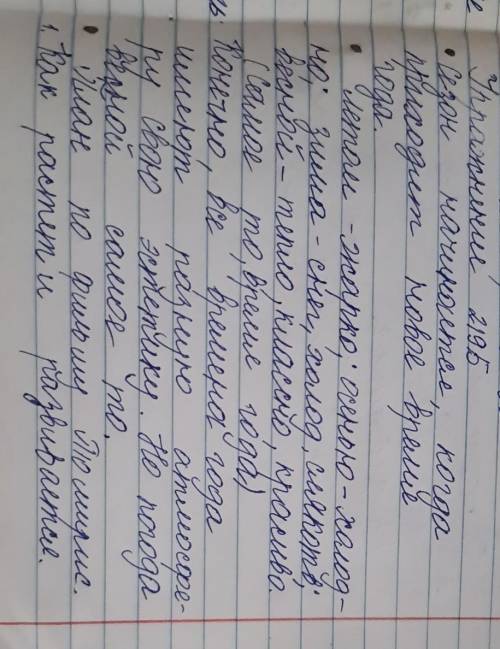 Упражнение 2195
• Сезон начинается, когда
приходит новое время
года.
• Летом - жарко; осенью - холод-
но; зима - снег, холод, слякоть;
весной - тепло, классно, красиво.
(Самое то, время года)
Конечно, все времена года
имеют разную атмосфе-
ру свою эстетику. Но погода
весной самое то.
• План по фильм Полюс.
1. Как растет и развивается.